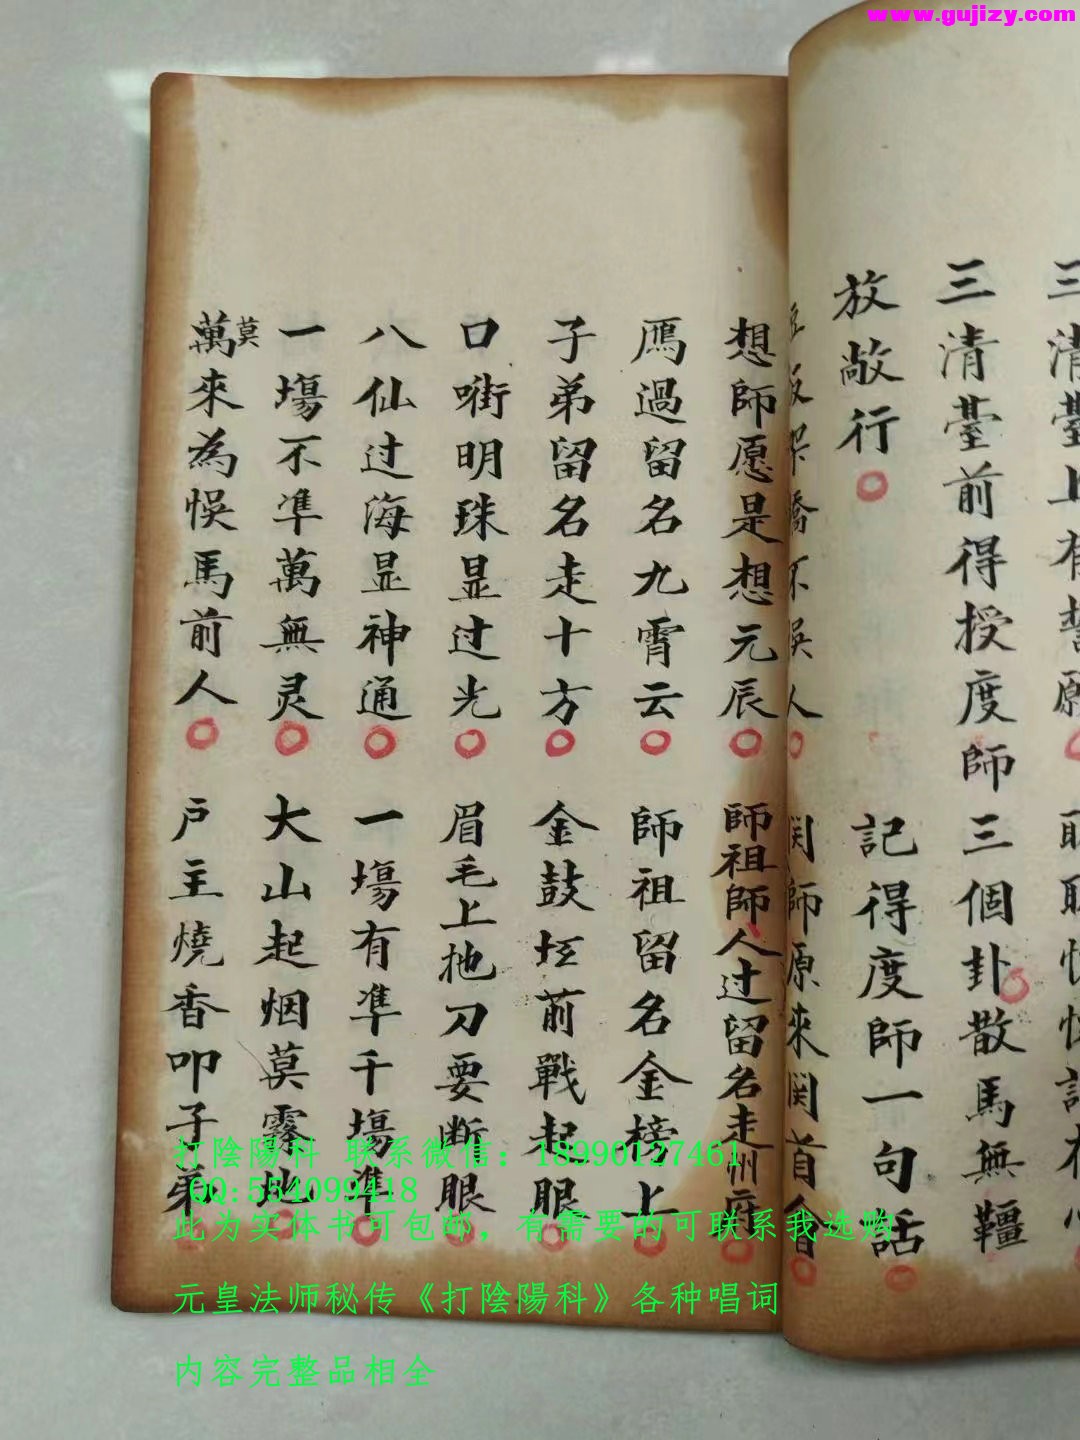 www.gujizy.com
三清臺前得授度師三個卦散馬無韁
放敞行
記得度師一句話
想師愿是想元辰
師祖師人过留名走州府
鴈過留名九霄云
師祖留名金榜上
子弟留名走十方
金鼓坛前戰起眼
口啣明珠显过光
眉毛上拖刀要断眼
八仙过海显神通
一塲有凖千塲凖
一塲不凖萬無灵
大山起烟莫霧地
莫
萬來為悮馬前人
戶主燒香叩子弟
打陰陽科 联系微信：18990127461
QQ:554099418
此为实体书可包邮，有需要的可联系我选购
元皇法师秘传《打陰陽科》各种唱词
内容完整品相全